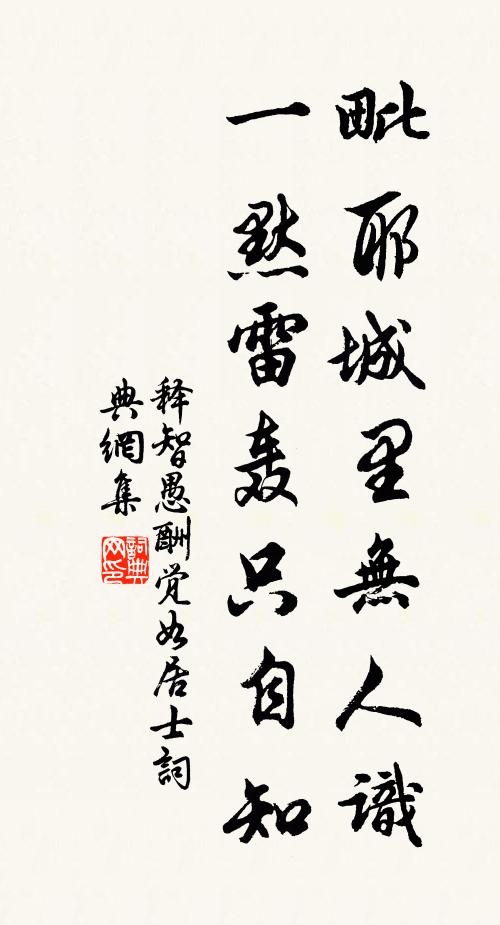 毗耶城里無人識
一默雷轰只自知
释智愚酬觉如居士詞
典網集
詞典网印